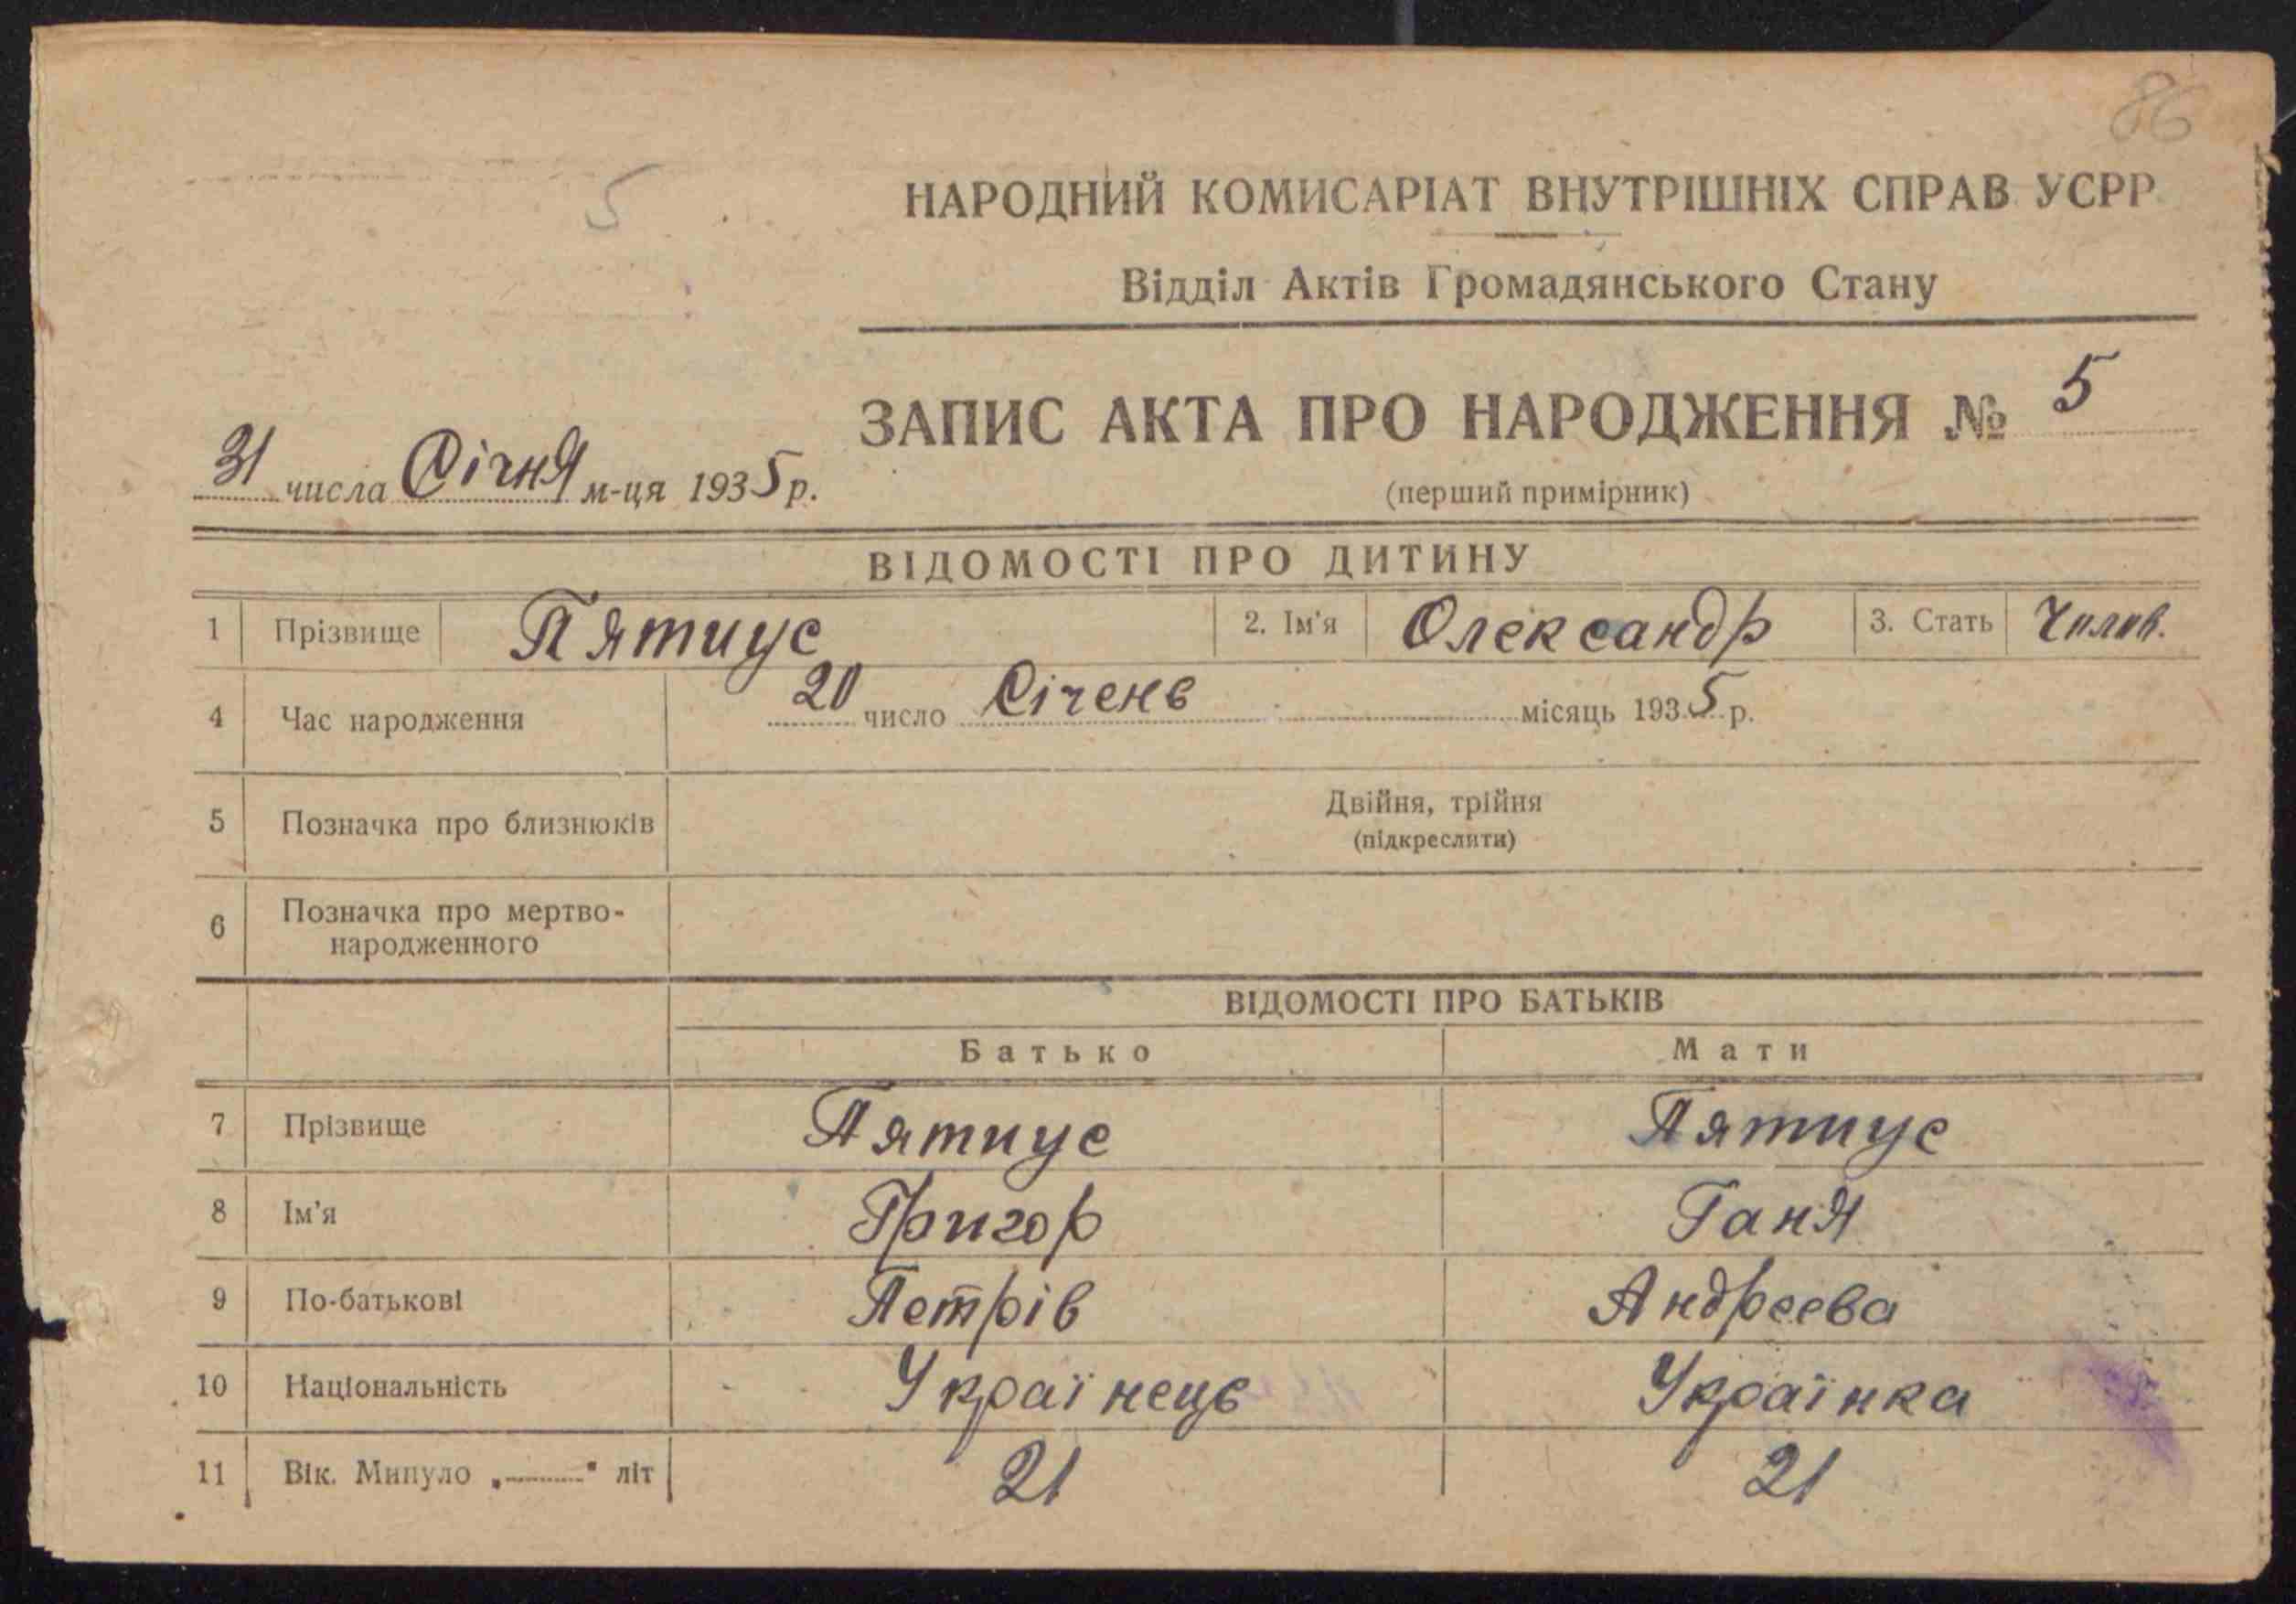 86
5
НАРОДНИЙ КОМИСАРІАТ ВНУТРІШНІХ СПРАВ УСРР
Відділ Актів Громадянського Стану
ЗАПИС АКТА ПРО НАРОДЖЕННЯ № 5
31 числа Січня м-ця 1935 р.
(перший примірник)
ВІДОМОСТІ ПРО ДИТИНУ
1 Прізвище Пятиус 2. Ім'я Олександр 3. Стать Чолов.
4 Час народження 20 число Січень місяць 1935 р.
5 Позначка про близнюків Двійня, трійня
(підкреслити)
6 Позначка про мертво-
народженного
ВІДОМОСТІ ПРО БАТЬКІВ
Батько Мати
7 Прізвище Пятиус Пятиус
8 Ім'я Григор Ганя
9 По-батькові Петрів Андреева
10 Національність Українець Українка
11 Вік. Минуло „ " літ 21 21